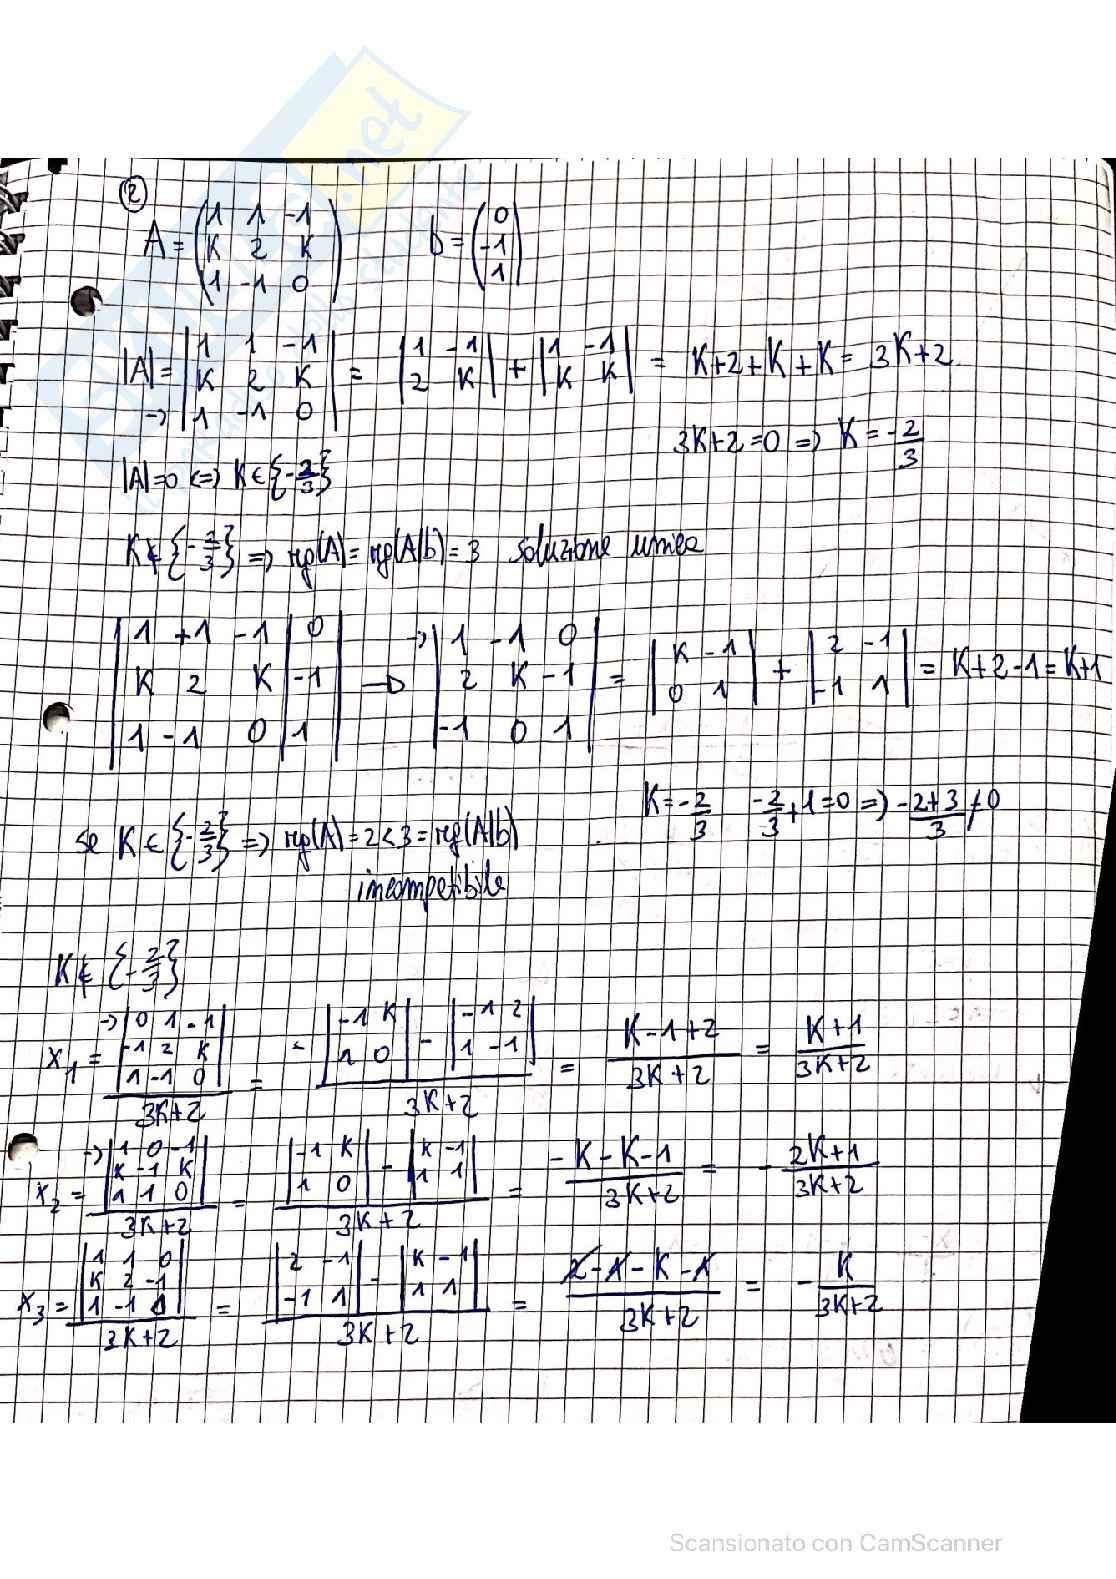 ②
A = (1 1 -1 / K 2 K / 1 -1 0) b = (0 / -1 / 1)
|A| = |1 1 -1 / K 2 K / → 1 -1 0| = |1 -1 / 2 K| + |1 -1 / K K| = K+2+K+K = 3K+2
3K+2=0 => K = -2/3
|A|=0 <=> K ∈ {-2/3}
K ∉ {-2/3} => rg(A) = rg(A|b) = 3 soluzione unica
|1 +1 -1 | 0 / K 2 K | -1 / 1 -1 0 | 1| → |→ 1 -1 0 / 2 K -1 / -1 0 1| = |K -1 / 0 1| + |2 -1 / -1 1| = K+2-1 = K+1
K = -2/3 -2/3 + 1 = 0 => -2+3/3 ≠ 0
se K ∈ {-2/3} => rg(A) = 2 < 3 = rg(A|b)
incompatibile
K ∉ {-2/3}
x1 = |→ 0 1 -1 / -1 2 K / 1 -1 0| / 3K+2 = - |-1 K / 1 0| - |-1 2 / 1 -1| / 3K+2 = K-1+2 / 3K+2 = K+1 / 3K+2
x2 = |→ 1 0 -1 / K -1 K / 1 1 0| / 3K+2 = |-1 K / 1 0| - |K -1 / 1 1| / 3K+2 = -K-K-1 / 3K+2 = - 2K+1 / 3K+2
x3 = |1 1 0 / K 2 -1 / 1 -1 1| / 3K+2 = |2 -1 / -1 1| - |K -1 / 1 1| / 3K+2 = 2-1-K-1 / 3K+2 = - K / 3K+2
Scansionato con CamScanner